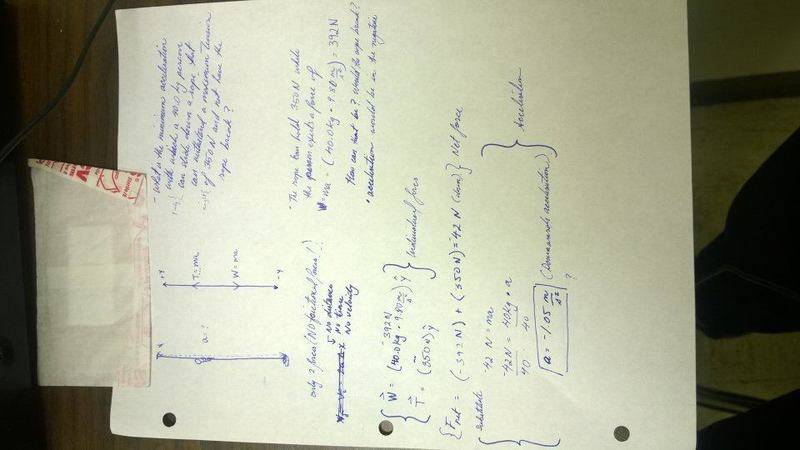 - What is the minimum acceleration
with which a 40.0 kg person
can slide down a rope that
can withstand a maximum tension
of 350 N and not have the
rope break?
+y
T=ma
W=ma
-y
a=?
The rope can hold 350N while
the person exerts a force of
W=ma = (40.0kg · 9.80 m/s²) = 392N
How can that be? Would the rope break?
• acceleration would be in the negative
only 2 forces (No frictional force!)
No distance
no time
No velocity
-392N
W⃗ = (40.0kg · 9.80 m/s²) ŷ
T⃗ = (350N) ŷ
} Individual forces
{ Fnet = (-392N) + (350N) = -42N (down) } Net force
substitute
-42 N = ma
-42N = 40kg · a
40 40
a = -1.05 m/s² (Downwards acceleration)
?
} Acceleration